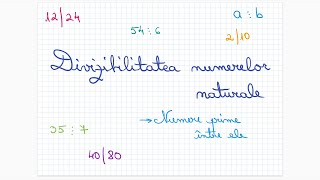 12/24
54 ⋮ 6
a ⋮ b
2/10
Divizibilitatea numerelor
naturale
→ Numere prime
între ele
35 ⋮ 7
40/80